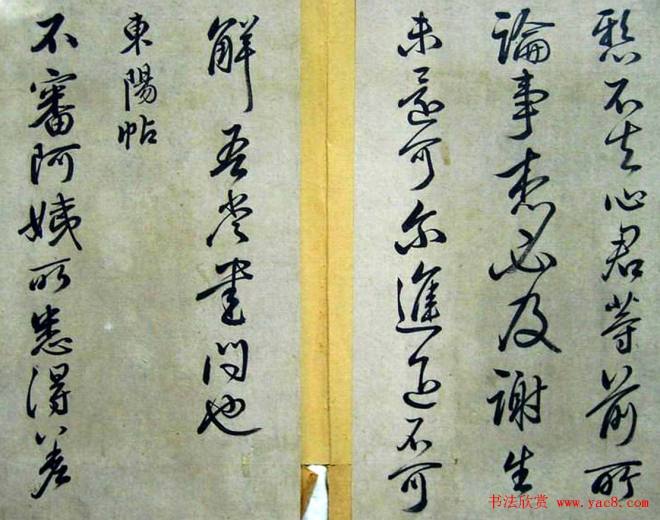 愁不去心君等前所
論事想必及謝生
未還可尔進退不可
解吾當書問也
東陽帖
不審阿姨所患得差
书法欣赏 www.yac8.com